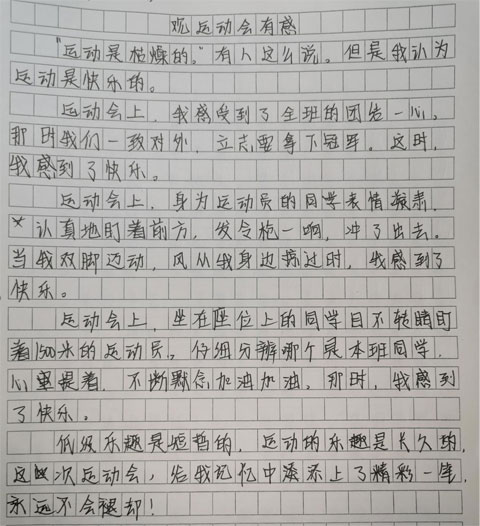 观运动会有感
"运动是枯燥的。"有人这么说。但是我认为
运动是快乐的。
运动会上，我感受到了全班的团结一心，
那时我们一致对外，立志要拿下冠军。这时，
我感到了快乐。
运动会上，身为运动员的同学表情凝肃，
认真地盯着前方，发令枪一响，冲了出去。
当我双脚迈动，风从我身边掠过时，我感到了
快乐。
运动会上，坐在座位上的同学目不转睛盯
着1500米的运动员，仔细分辨哪个是本班同学，
心里提着，不断默念加油加油。那时，我感到
了快乐。
低级乐趣是短暂的，运动的乐趣是长久的，
这次运动会，给我记忆中添添上了精彩一笔，
永远不会褪却！